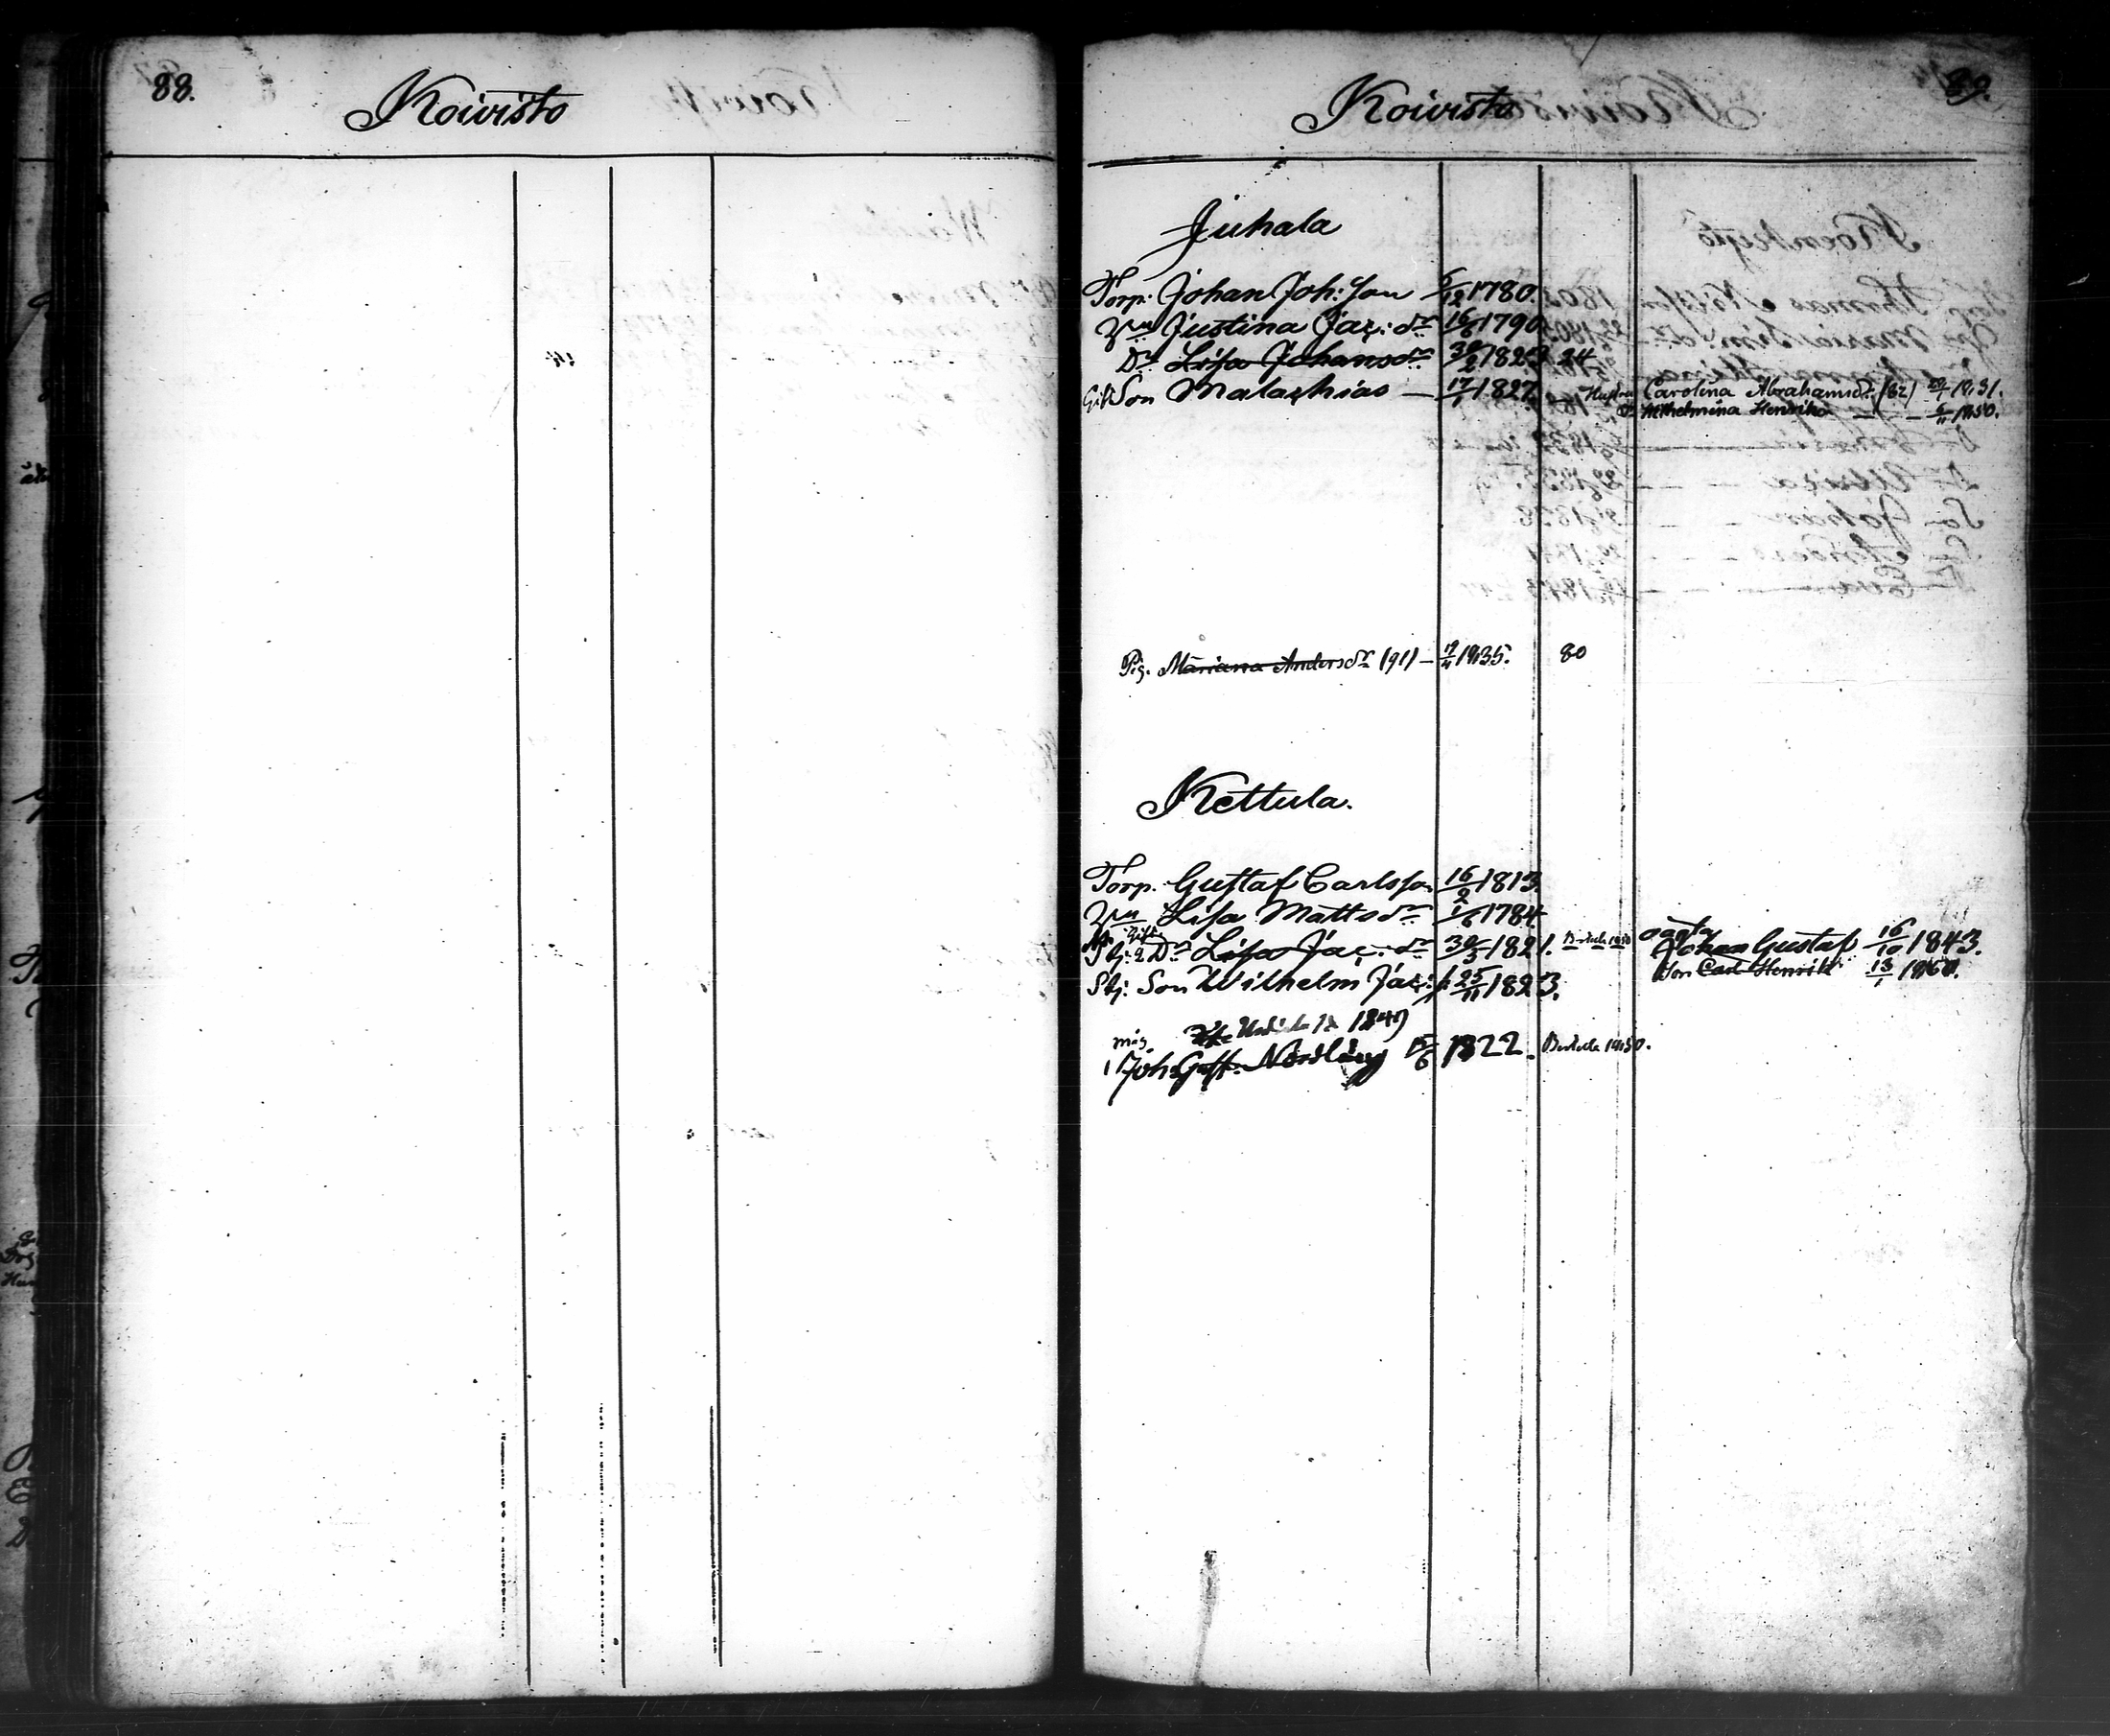 88.
Koivisto
Koivisto
89.
Juhala
Torp. Johan Joh: Son 5/12 1780.
Justina Jac: dr 16/6 1790
Dr Lisa Johansdr 30/2 1823 24
Gift Son Malachias — 17/1 1827. — Hustru Carolina Abrahamsdr (82) 29/1 1831.
Dr Wilhelmina Henrika — — 5/11 1850.
Pig. Mariana Andersdr (91) — 17/11 1835. 80
Kettula.
Torp. Gustaf Carlsson 16/2 1813.
Lisa Mattsdr 1/6 1784.
Gift
Stj: Dr Lisa Jac: dr 30/3 1821. 1850 oägta Johan Gustaf 16/10 1843.
Stj: Son Wilhelm Jac: 25/11 1823. Son Carl Henrik 13/1 1850.
1849
Joh: Gust. Nordling 15/6 1822. 1850.